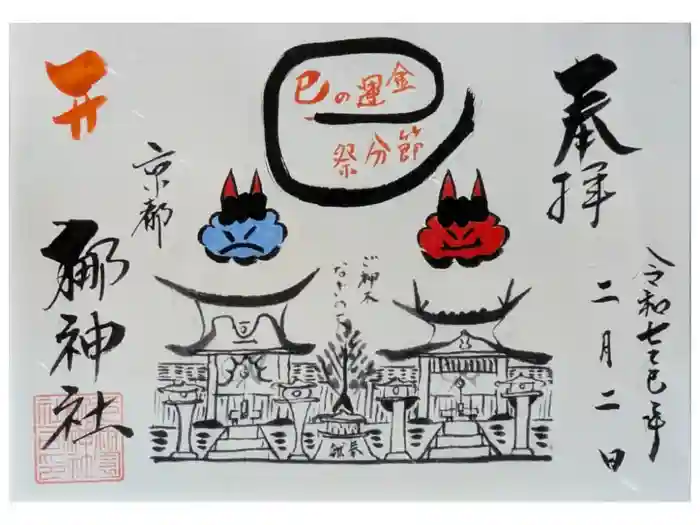 奉拝
令和七乙巳年
二月二日
巳の運金
節分祭
京都
梛神社
ご神木
なぎの